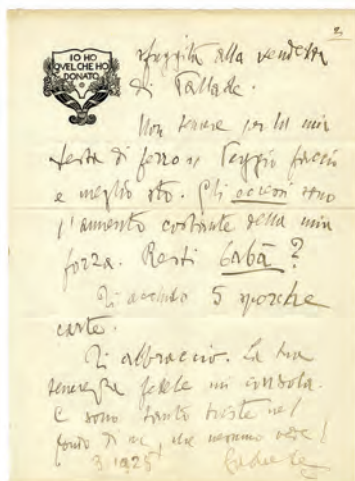 2.
IO HO
QVEL CHE HO
DONATO
sfuggita alla vendetta
di Pallade.
Non temere per la mia
testa di ferro. Peggio faccio
e meglio sto. Gli eccessi sono
l'aumento costante della mia
forza. Resti
Ti accludo 5 sporche
carte.
Ti abbraccio. La tua
tenerezza fedele mi consola.
E sono tanto triste nel
fondo di me, che nessuno vede!
3 1925